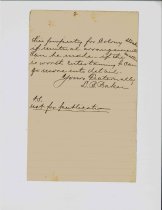 this property for Colony
if mutual arrangements
can be made if this
is worth entertaining I can
go more into detail.
Yours Fraternally,
L. C. Baker
P.S.
Not for publication